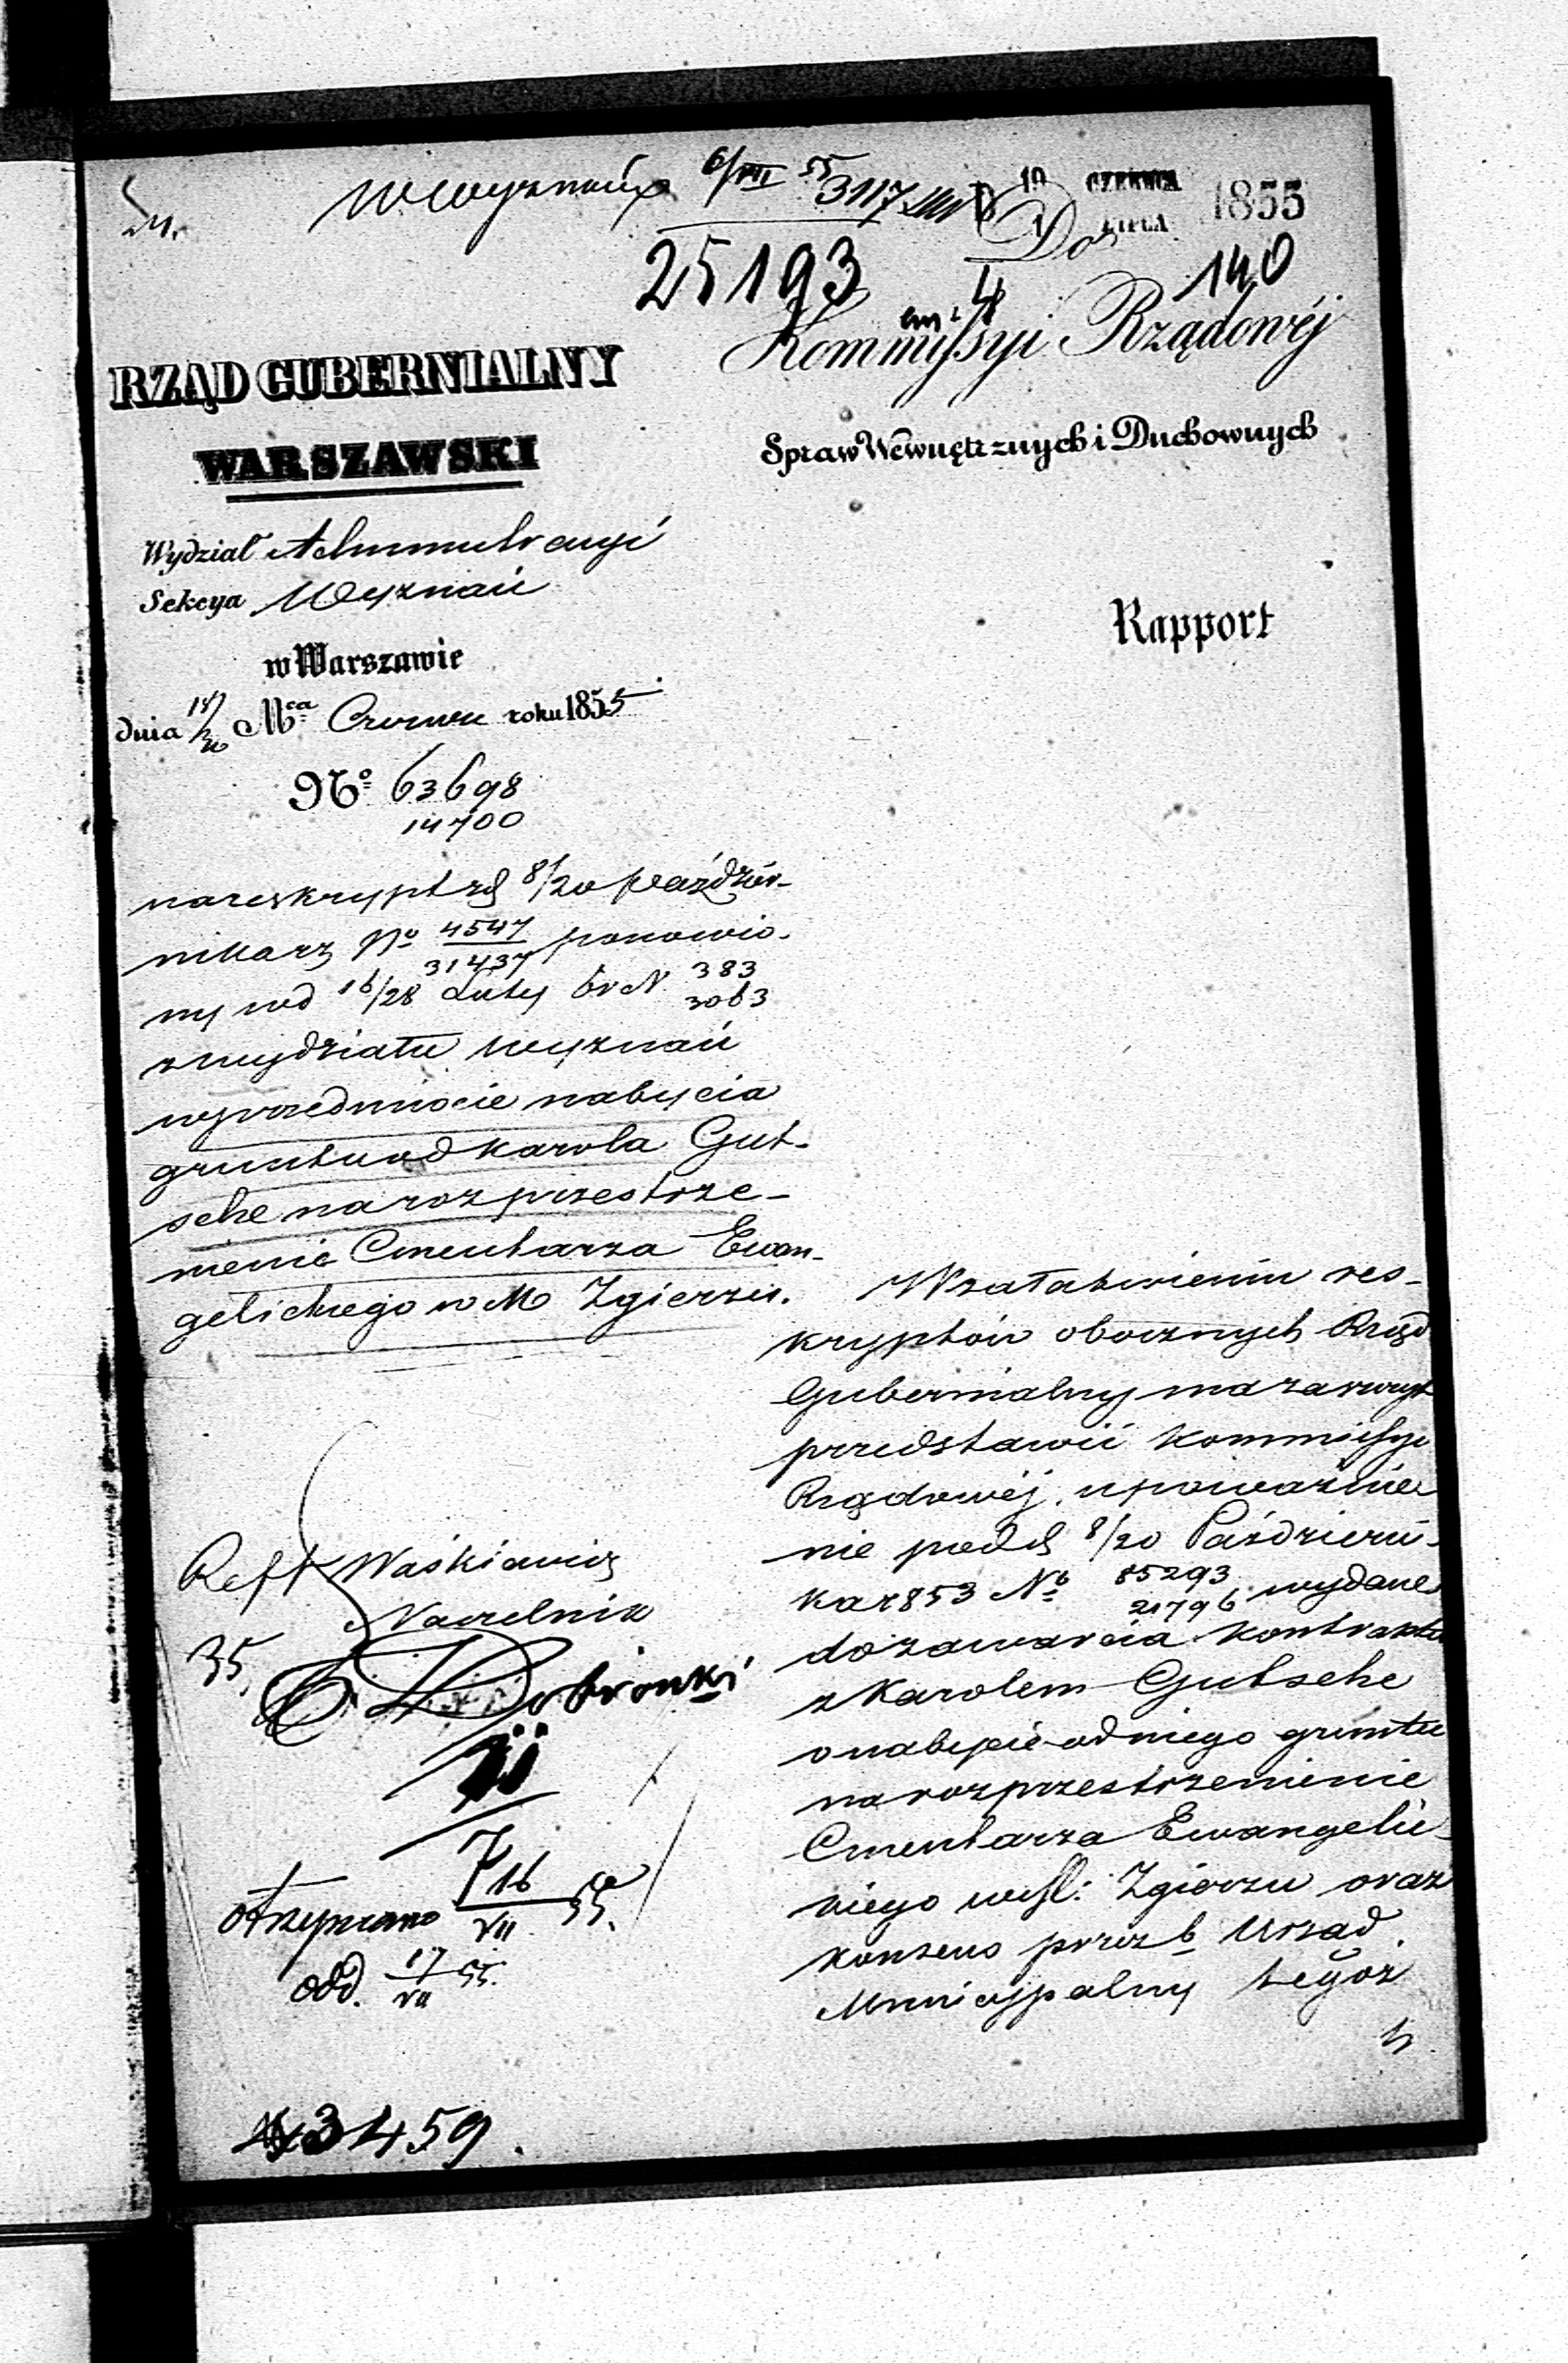 W Wyznań 6/VII 55
3117
19 CZERWCA
1 LIPCA 1855
25193
4
140
Do
Kommissyi Rządowéj
Spraw Wewnętrznych i Duchownych
Rapport
RZĄD GUBERNIALNY
WARSZAWSKI
Wydział Administracyi
Sekcya Wyznań
w Warszawie
dnia 18/30 Mca Czerwca roku 1855
No 63698
14700
na reskrypt z d 8/20 paździer-
nika rz No 4547/31437 ponowio-
ny pod 16/28 Luty br N 383/3063
z wydziału wyznań
w przedmiocie nabycia
gruntu od Karola Gut-
sche na rozprzestrze-
nienie Cmentarza Ewan-
gelickiego w M Zgierzu.
W załatwieniu res-
kryptów obocznych Rząd
Gubernialny ma zaszczyt
przedstawić Kommissyi
Rządowéj, upoważnie
nie pod d 8/20 Październi-
ka r 853 No 85293/21796 wydane
do zawarcia kontraktu
z Karolem Gutsche
o nabycie od niego gruntu
na rozprzestrzenienie
Cmentarza Ewangelic-
kiego w Zgierzu oraz
konsens przez b Urząd
Municypalny tegoż
Reft Waśkiewicz
Naczelnik
35
Dobronki
otrzymano 16/VII 55.
odd. 17/VII 55.
3459.